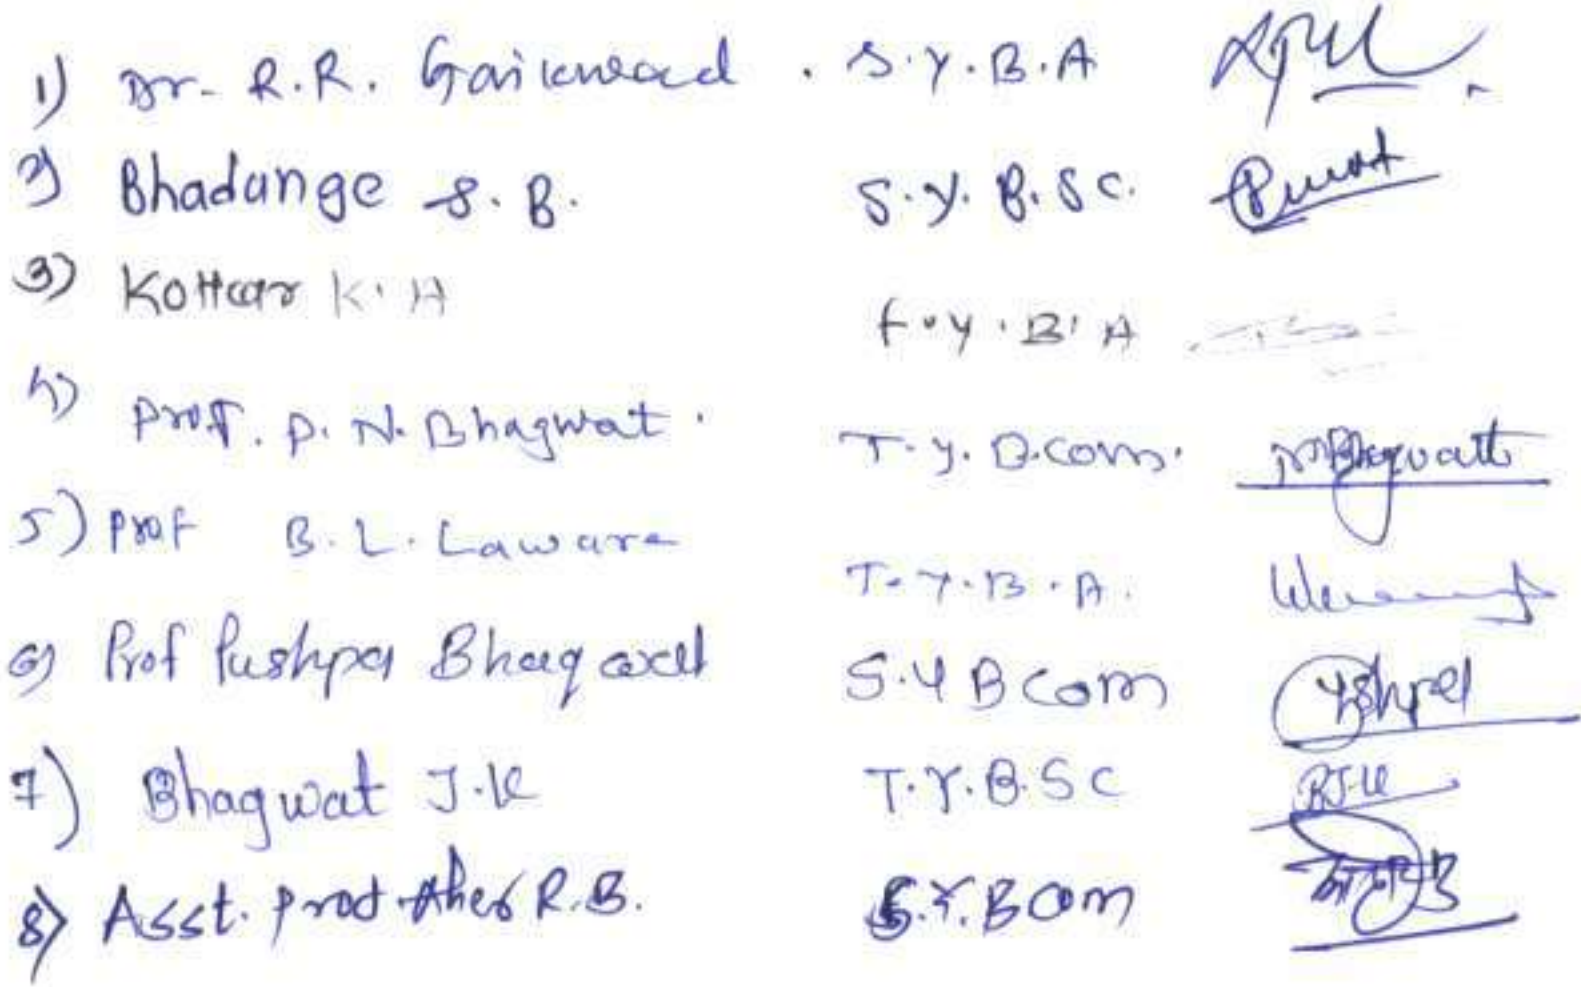 1) Dr. R.R. Gaikwad . S.Y.B.A
2) Bhadange S.B. S.Y.B.Sc.
3) Kottar K.A F.Y.B.A
4) Prof. P.N. Bhagwat. T.Y.B.com. Bhagwat
5) Prof B.L. Laware T.Y.B.A.
6) Prof Pushpa Bhagwat S.Y B com
7) Bhagwat J.K T.Y.B.SC BJ.K
8) Asst. prof Aher R.B. S.Y.B com